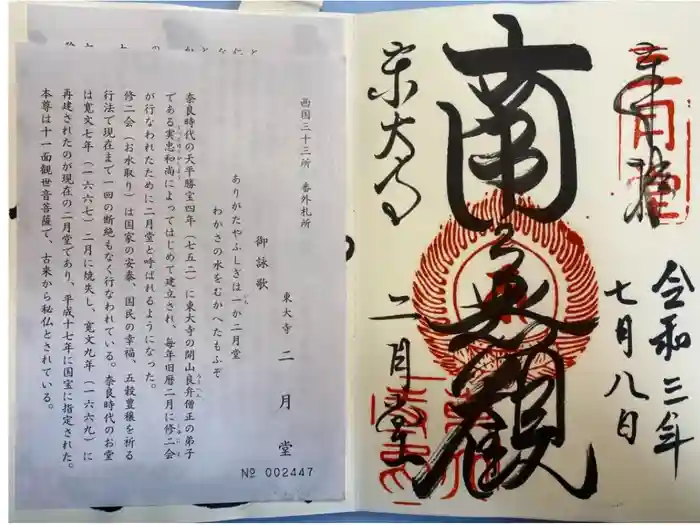 奉拝
二月堂
令和三年
七月八日
南無観
東大寺
二月堂
西国三十三所 番外札所
東大寺 二月堂
御詠歌
ありがたやふしぎは一か二月堂
わかさの水をむかへたもふぞ
奈良時代の天平勝宝四年（七五二）に東大寺の開山良弁僧正の弟子
である実忠和尚によってはじめて建立され、毎年旧暦二月に修二会
が行なわれたために二月堂と呼ばれるようになった。
修二会（お水取り）は国家の安泰、国民の幸福、五穀豊穣を祈る
行法で現在まで一回の断絶もなく行なわれている。奈良時代のお堂
は寛文七年（一六六七）二月に焼失し、寛文九年（一六六九）に
再建されたのが現在の二月堂であり、平成十七年に国宝に指定された。
本尊は十一面観世音菩薩で、古来から秘仏とされている。
№ 002447